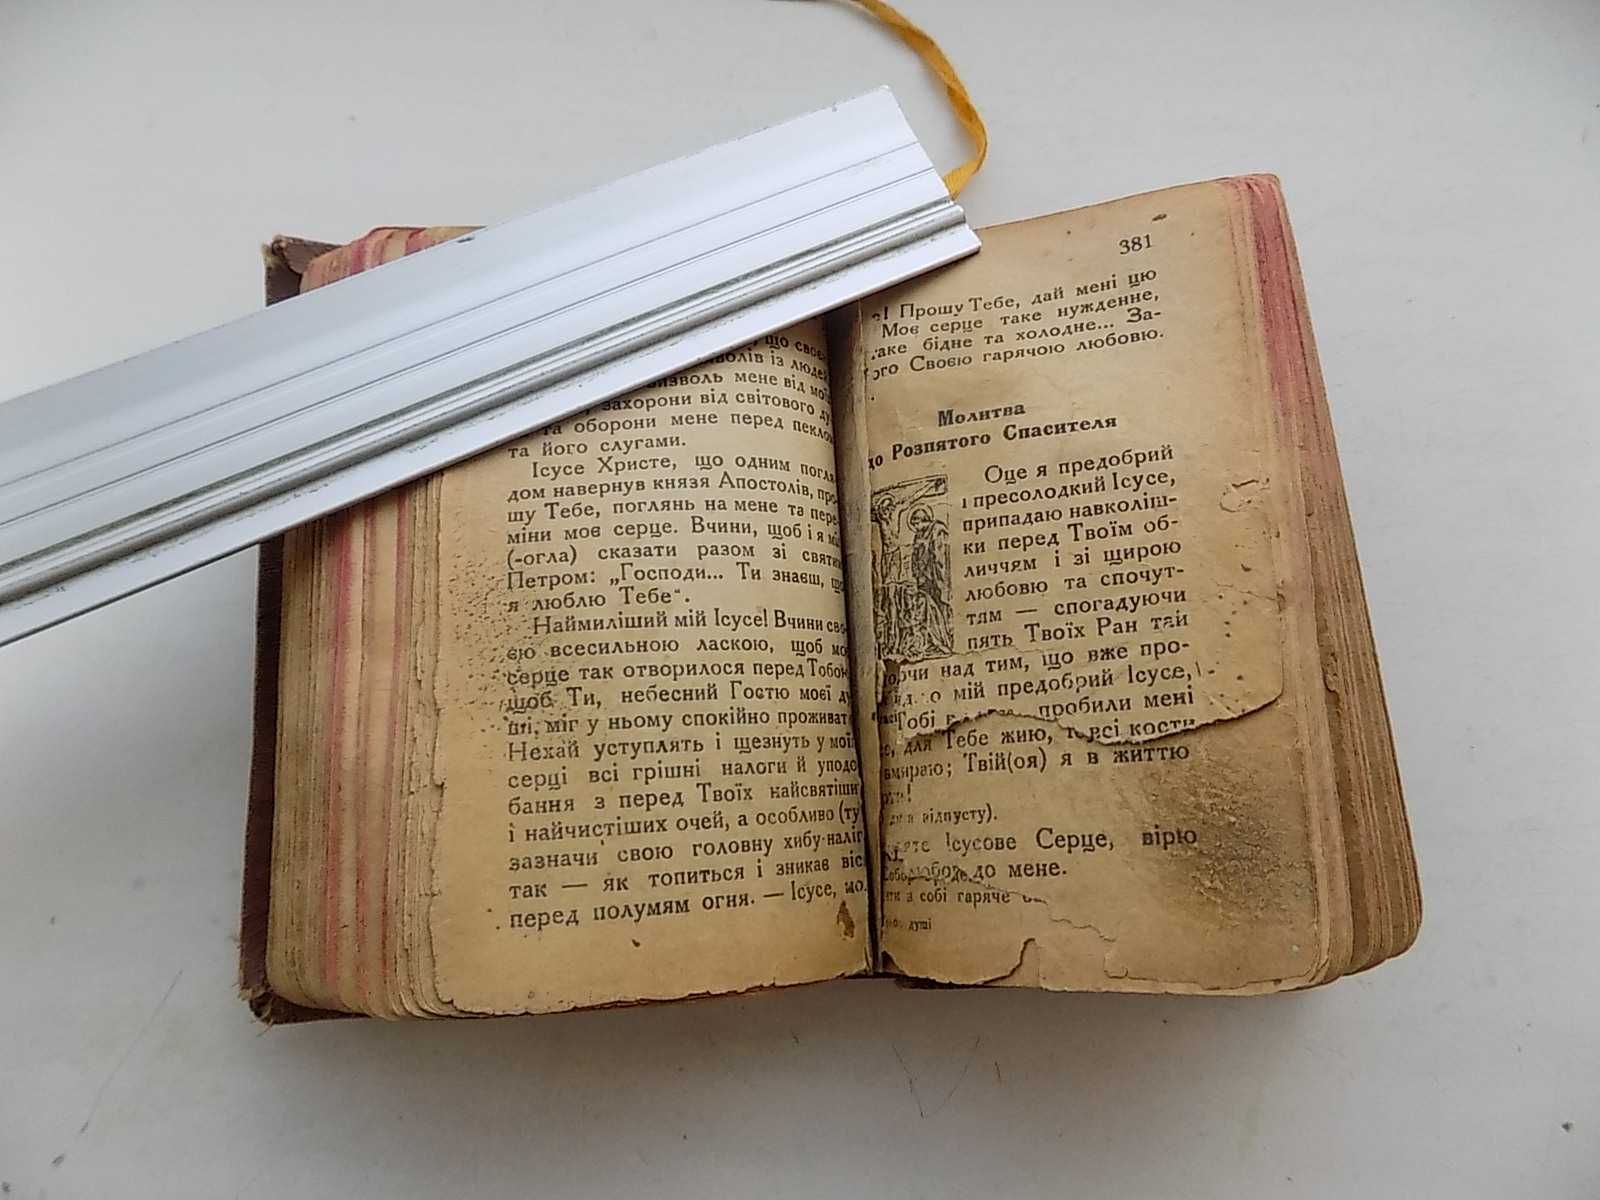 що своє
із людей
визволь мене від
захорони від світового
та оборони мене перед
та його слугами.
Ісусе Христе, що одним погля-
дом навернув князя Апостолів, про-
шу Тебе, поглянь на мене та пере-
міни моє серце. Вчини, щоб і я
(-огла) сказати разом зі святим
Петром: „Господи... Ти знаєш, що
я люблю Тебе“.
Наймиліший мій Ісусе! Вчини сво-
єю всесильною ласкою, щоб
серце так отворилося перед Тобою
щоб Ти, небесний Гостю моєї ду-
ші, міг у ньому спокійно проживат
Нехай уступлять і щезнуть у моїм
серці всі грішні налоги й уподо-
бання з перед Твоїх найсвятіши
і найчистіших очей, а особливо (ту
зазначи свою головну хибу-наліг
так — як топиться і зникає віс
перед полумям огня. — Ісусе,
381
Прошу Тебе, дай мені цю
Моє серце таке нужденне,
таке бідне та холодне... За-
Своєю гарячою любовю.
Молитва
до Розпятого Спасителя
Оце я предобрий
і пресолодкий Ісусе,
припадаю навколіш-
ки перед Твоїм об-
личчям і зі щирою
любовю та спочут-
тям — спогадуючи
пять Твоїх Ран тай
над тим, що вже про-
о мій предобрий Ісусе,
Тобі пробили мені
для Тебе жию, всі кости
вмираю; Твій(оя) я в життю
відпусту).
Ісусове Серце, вірю
до мене.
в собі гаряче
душі